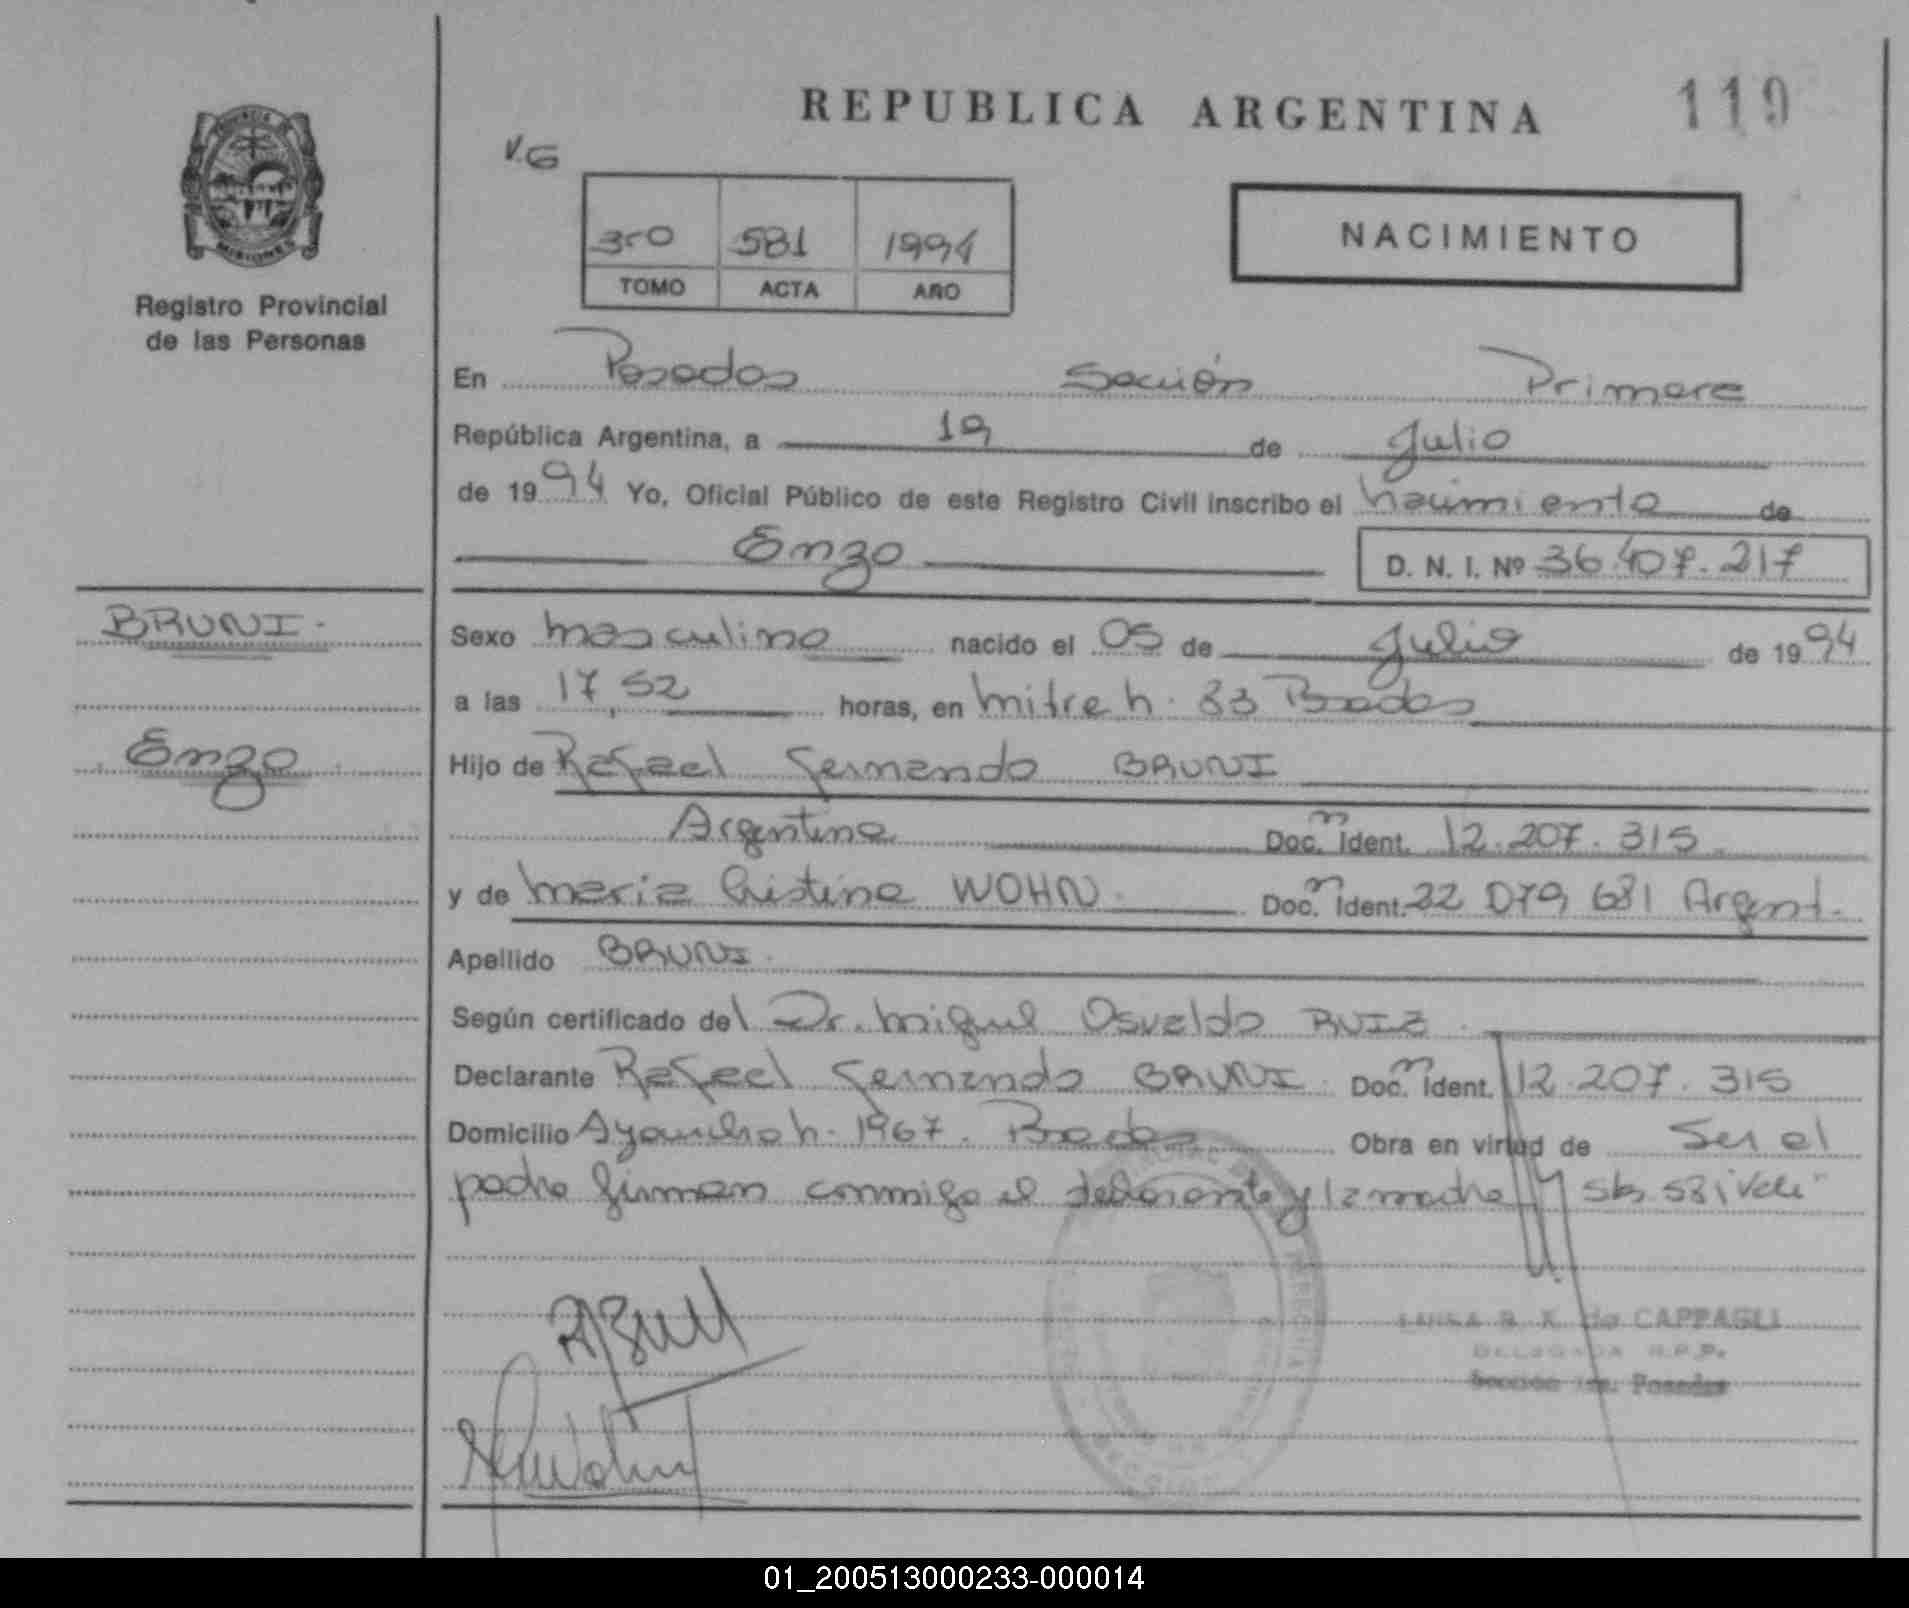 REPUBLICA ARGENTINA
119
V.G
3r0 581 1994
TOMO ACTA AÑO
NACIMIENTO
PROVINCIA DE
MISIONES
Registro Provincial
de las Personas
En Posadas Sección Primera
República Argentina, a 19 de Julio
de 1994 Yo, Oficial Público de este Registro Civil inscribo el nacimiento de
Enzo
D. N. I. Nº 36.407.217
BRUNI.
Enzo
Sexo masculino nacido el 05 de Julio de 1994
a las 17,52 horas, en mitre n. 83 Posadas
Hijo de Rafael Fernando BRUNI
Argentina Doc. n Ident. 12.207.315
y de maria Cristina WOHN. Doc. n Ident. 22 079 681 Argent.
Apellido BRUNI.
Según certificado del Dr. Miguel Osvaldo RUIZ
Declarante Rafael Fernando BRUNI Doc. n Ident. 12.207.315
Domicilio Ayacucho n. 1967. Posadas Obra en virtud de Ser el
padre firman conmigo el declarante y la madre
LUISA R. K. de CAPPAGLI
DELEGADA R.P.P.
Sección 1ra. Posadas
01_200513000233-000014